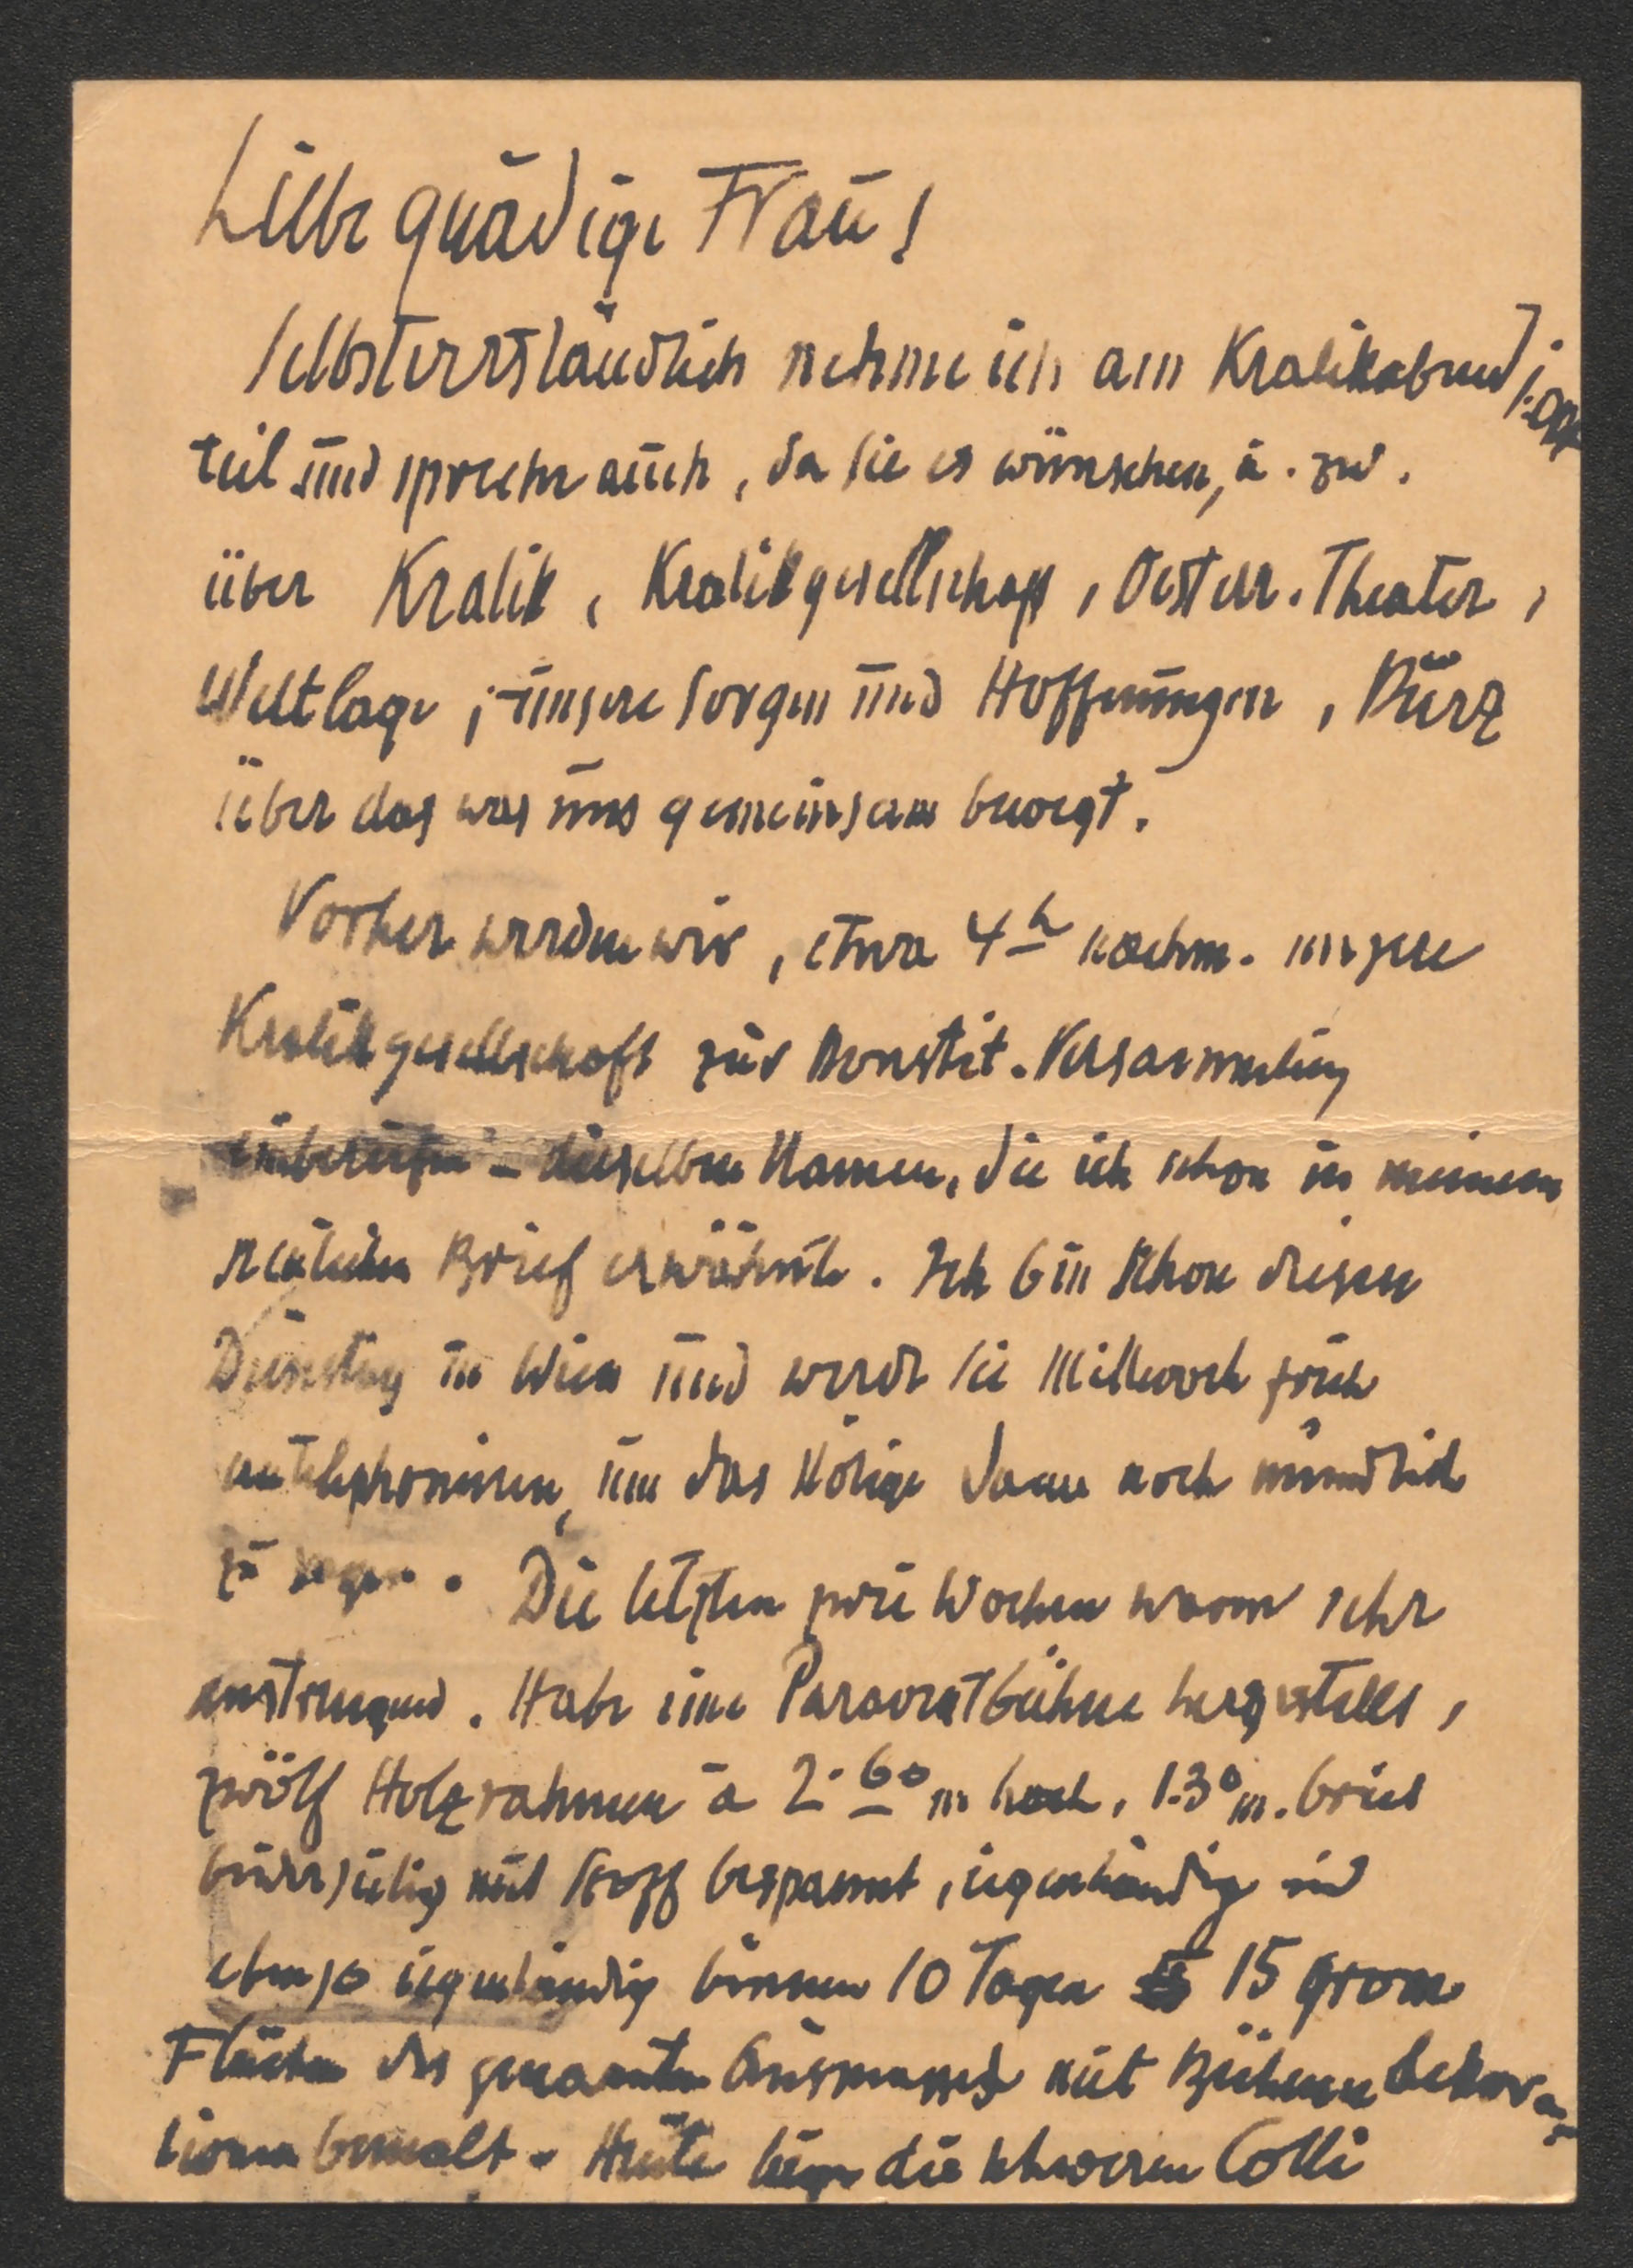 Liebe gnädige Frau!
Selbstverständlich nehme ich am Kralikabend
teil und spreche auch, da Sie es wünschen, u. zw.
über Kralik, Kralikgesellschaft, Oesterr. Theater,
Weltlage, unsere Sorgen und Hoffnungen, kurz
über das was uns gemeinsam bewegt.
Vorher werden wir, etwa 4h nachm. unsere
Kralikgesellschaft zur konstit. Versammlung
einberufen - dieselben Namen, die ich schon in meinem
neulichen Brief erwähnte. Ich bin schon diesen
Dienstag in Wien und werde Sie Mittwoch früh
antelephonieren, um das Nötige dann noch mündlich
zu sagen. Die letzten zwei Wochen waren sehr
anstrengend. Habe eine Paraventbühne hergestellt,
zwölf Holzrahmen à 2·60 m hoch, 1.30 m. breit
beiderseitig mit Stoff bespannt, eigenhändig und
ebenso eigenhändig binnen 10 Tagen 15 grosse
Flächen des genannten Ausmasses mit Bühnendekora-
tionen bemalt. Heute die schweren Colli